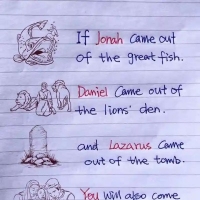 If Jonah came out
of the great fish.
Daniel came out of
the lions' den.
and Lazarus came
out of the tomb.
You will also come